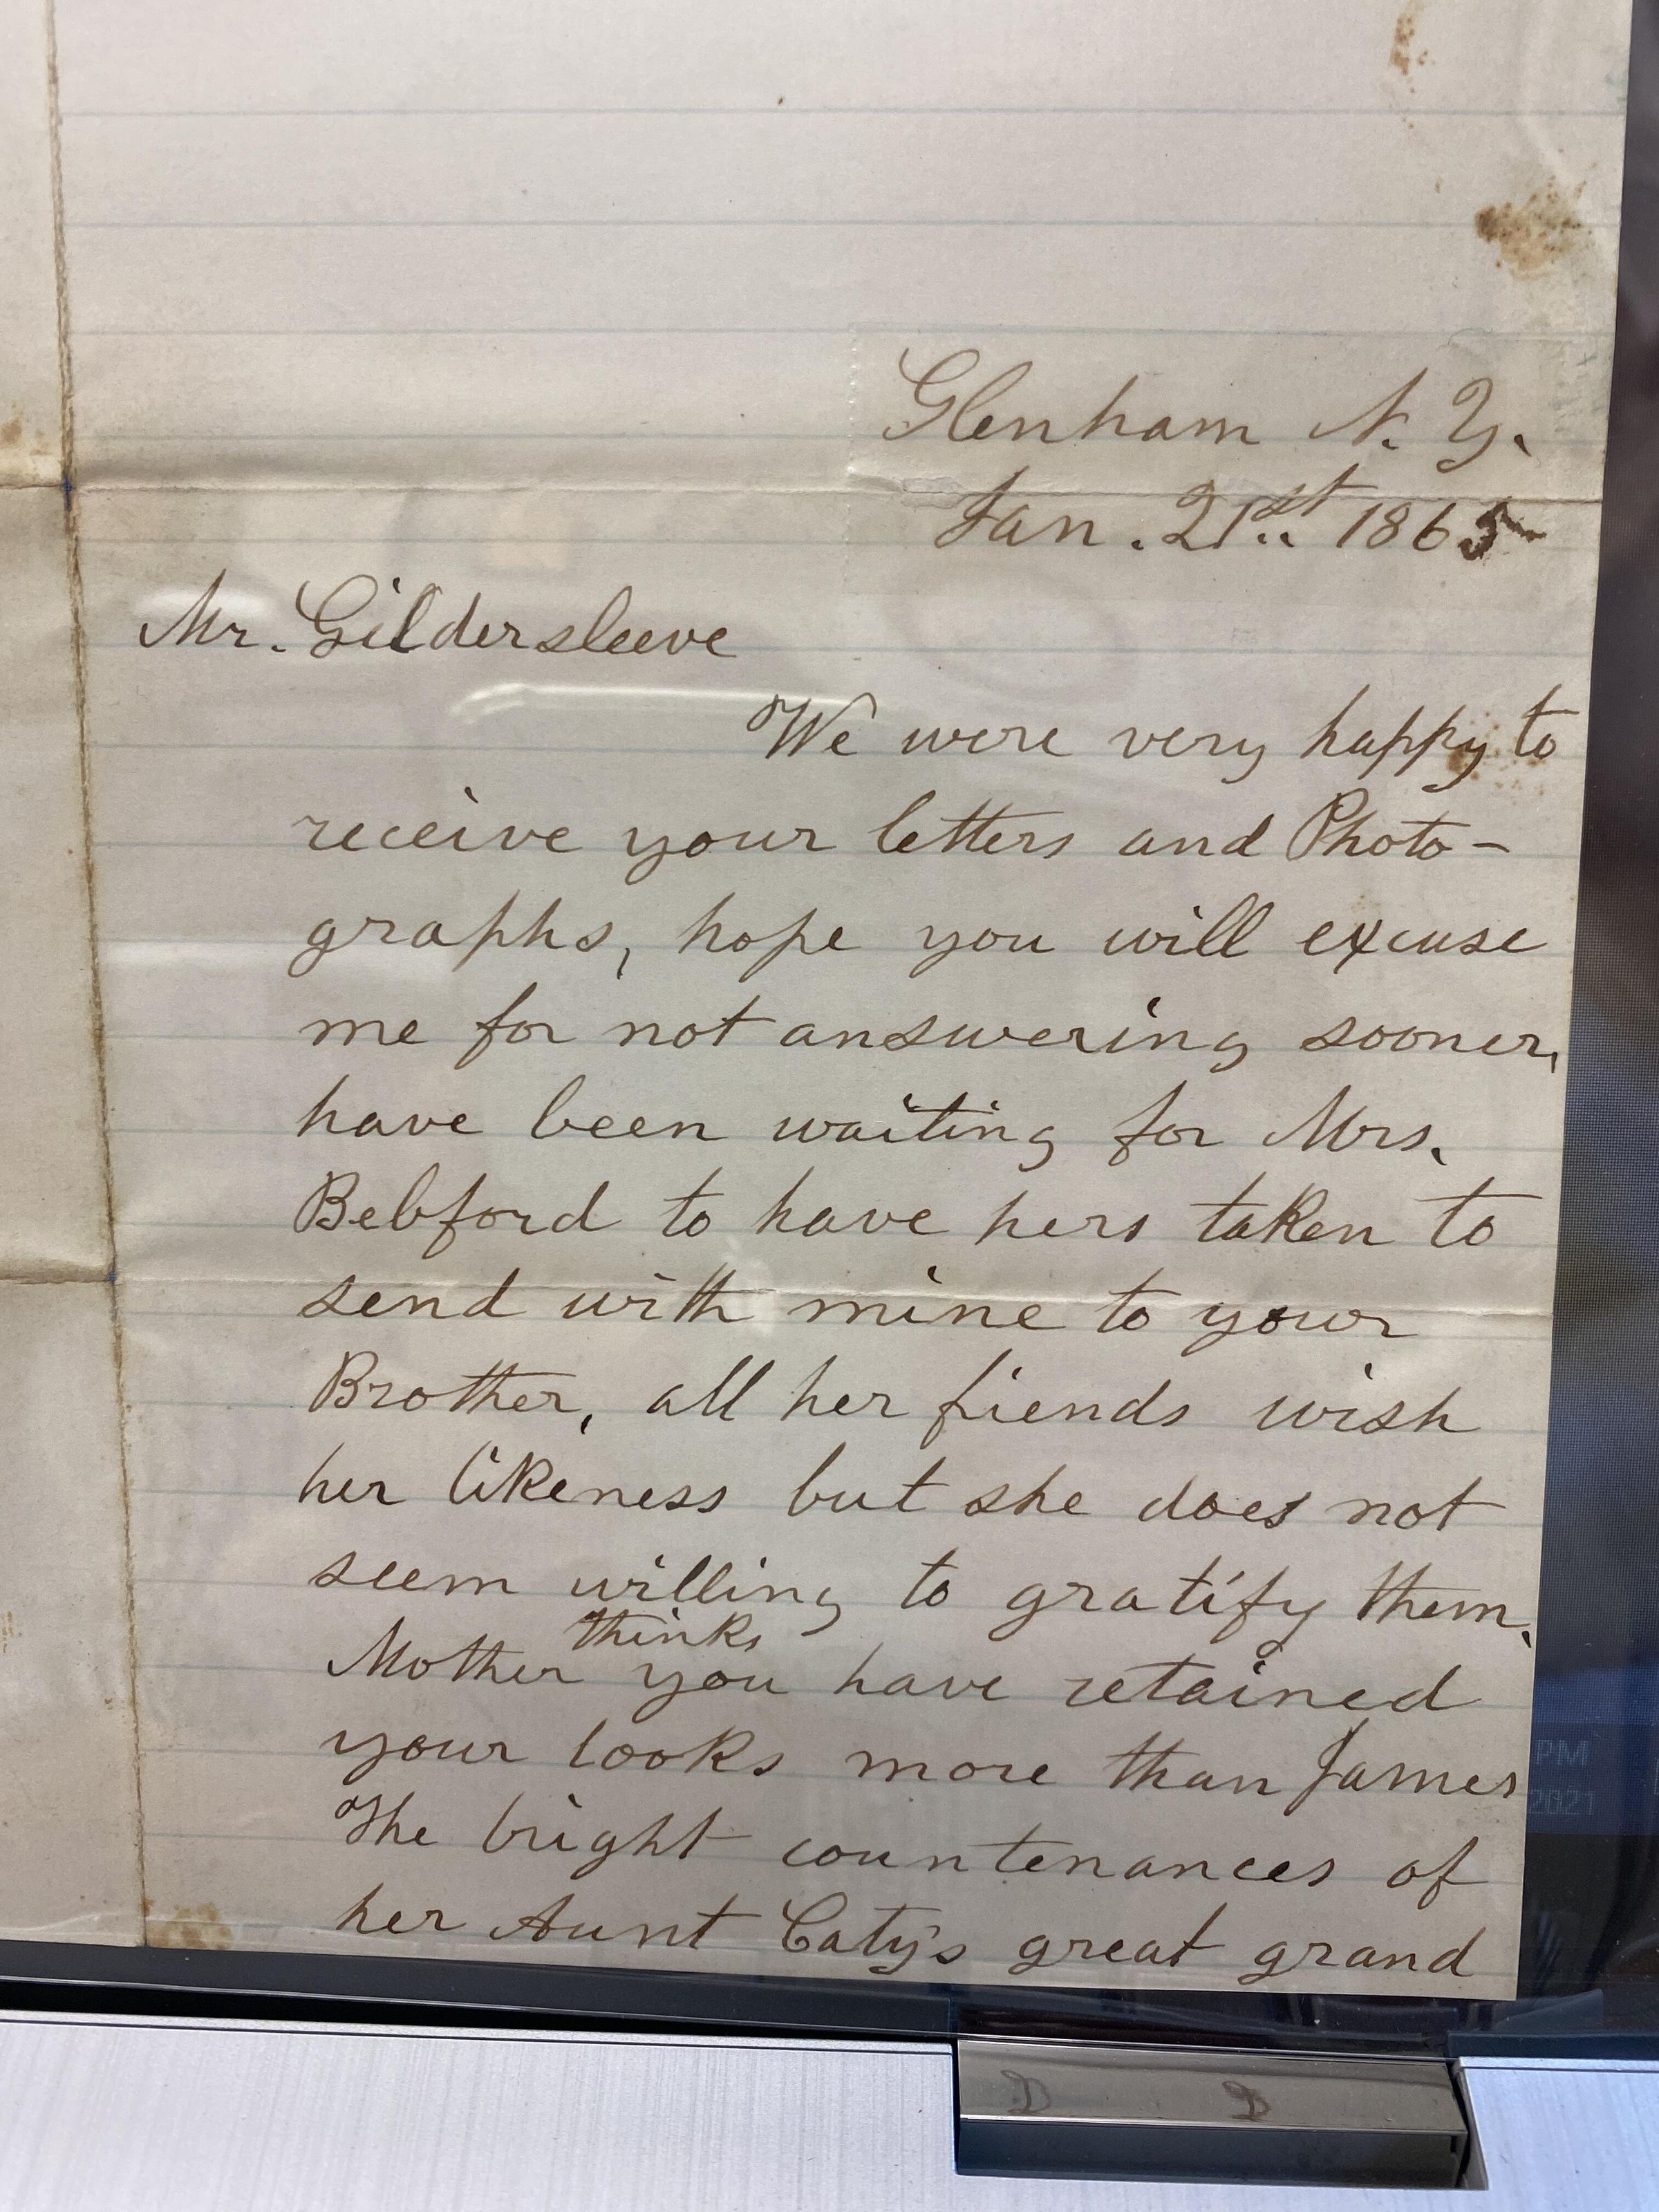 Glenham N. Y.
Jan. 21st. 1865
Mr. Gildersleeve
We were very happy to
receive your letters and Photo-
graphs, hope you will excuse
me for not answering sooner,
have been waiting for Mrs.
Bebford to have hers taken to
send with mine to your
Brother, all her fiends wish
her likeness but she does not
seem willing to gratify them.
thinks
Mother you have retained
your looks more than James
The bright countenances of
her Aunt Caty's great grand
PM
2021